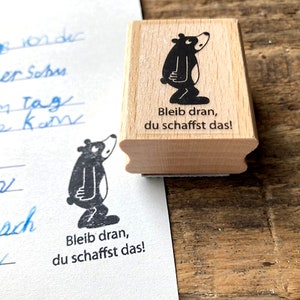 von der
er Sohn
Tag
kam
Bleib dran,
du schaffst das!
ach
Bleib dran,
du schaffst das!